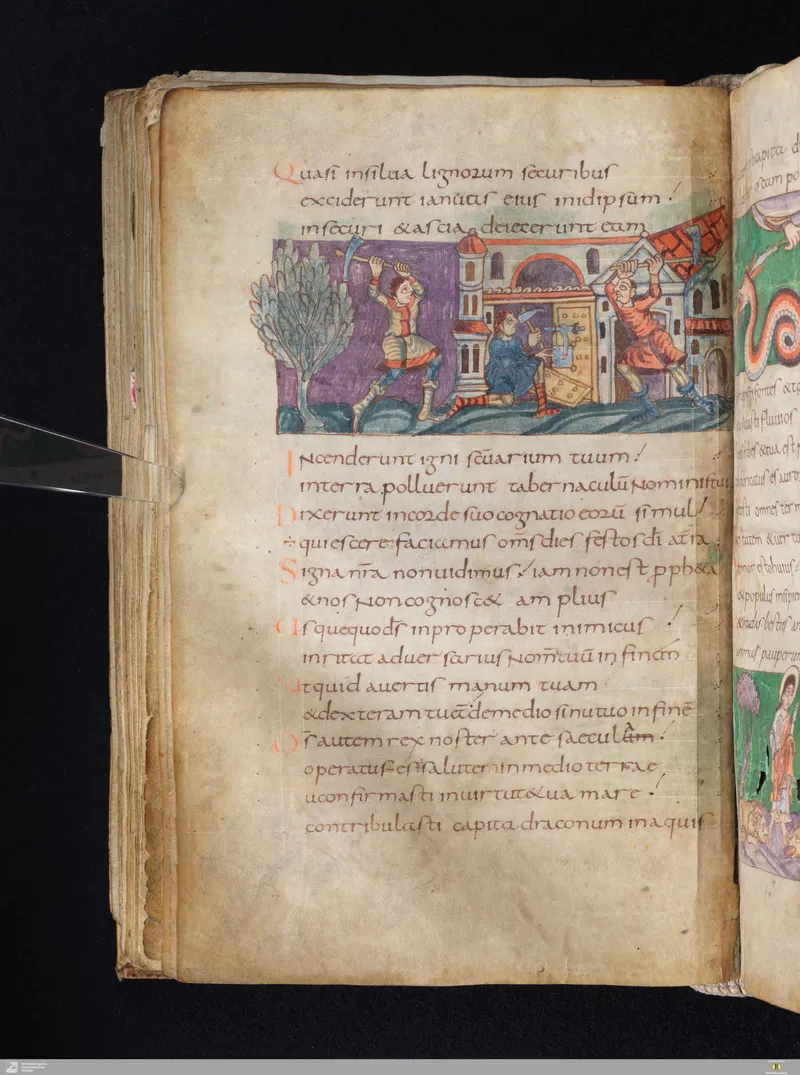 Quasi insilua lignorum securibus
exciderunt ianuas eius inidipsum
insecuri &ascia deiecerunt eam
Incenderunt igni scuarium tuum
interra polluerunt tabernaculū noministui
Dixerunt incorde suo cognatio eorū simul
quiescere faciamus oms dies festos di atra
Signa nra nonuidimus iam nonest pph&a
&nos non cognosc& am plius
Us quequo ds inproperabit inimicus
inritat aduersarius nom tuū in finem
Ut quid auertis manum tuam
&dexteram tuā demedio sinutuo in finē
Ds autem rex noster ante saeculam
operatus est salutem in medio terrae
Tu confirmasti in uirtut& ua mare
contribulasti capita draconum in aquis
capita d
escam po
fontes &to
fluuios
dies &tua est
es auro
omnes term
tatem & uer
populus insipien
bestiis an
pauperum